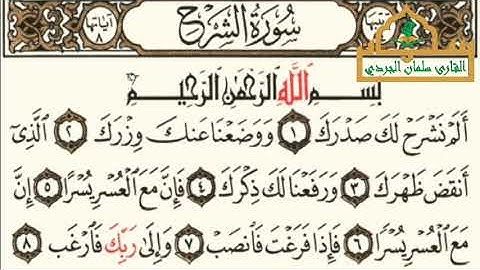 آياتها ٨
سورة الشرح
ترتيبها
القارئ سلمان الجردي
بِسْمِ اللَّهِ الرَّحْمَٰنِ الرَّحِيمِ
أَلَمْ نَشْرَحْ لَكَ صَدْرَكَ ١ وَوَضَعْنَا عَنكَ وِزْرَكَ ٢ الَّذِي
أَنقَضَ ظَهْرَكَ ٣ وَرَفَعْنَا لَكَ ذِكْرَكَ ٤ فَإِنَّ مَعَ الْعُسْرِ يُسْرًا ٥ إِنَّ
مَعَ الْعُسْرِ يُسْرًا ٦ فَإِذَا فَرَغْتَ فَانصَبْ ٧ وَإِلَىٰ رَبِّكَ فَارْغَب ٨